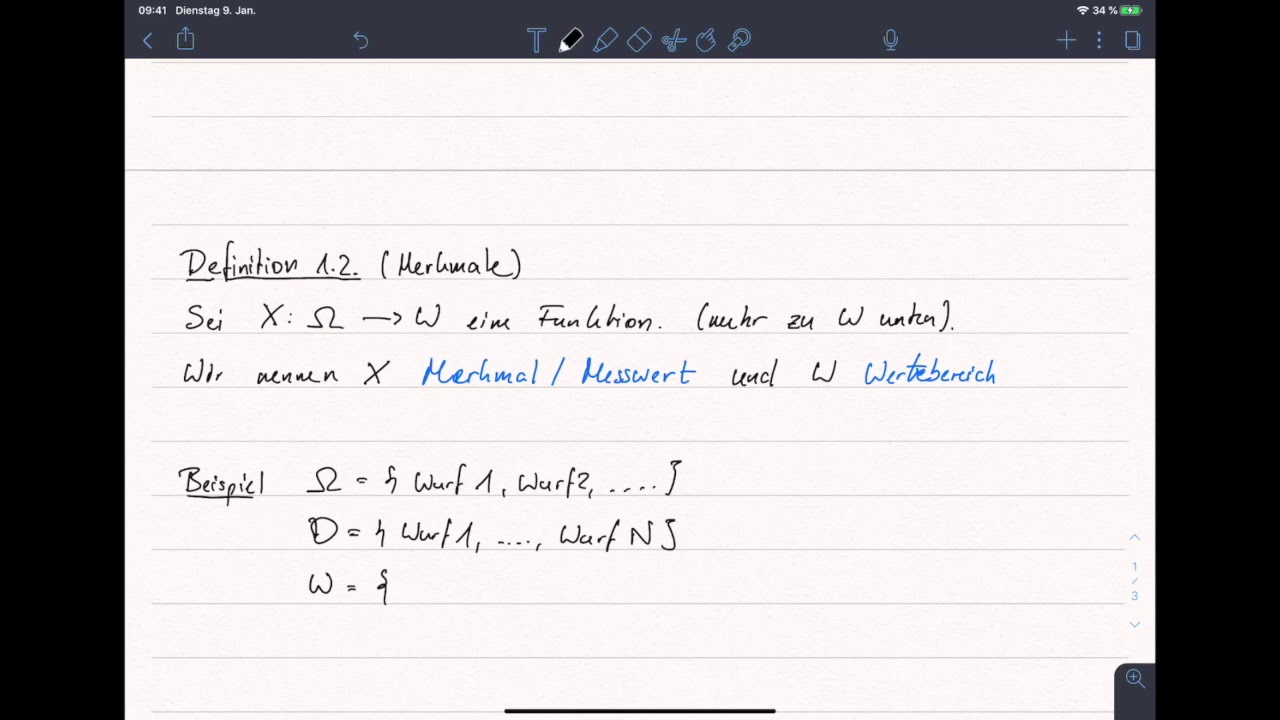 09:41 Dienstag 9. Jan. 34 %
Definition 1.2. (Merkmale)
Sei X: Ω → W eine Funktion. (mehr zu W unten).
Wir nennen X Merkmal / Messwert und W Wertebereich
Beispiel Ω = { Wurf 1, Wurf 2, ..... }
D = { Wurf 1, ....., Wurf N }
W = {
1
/
3